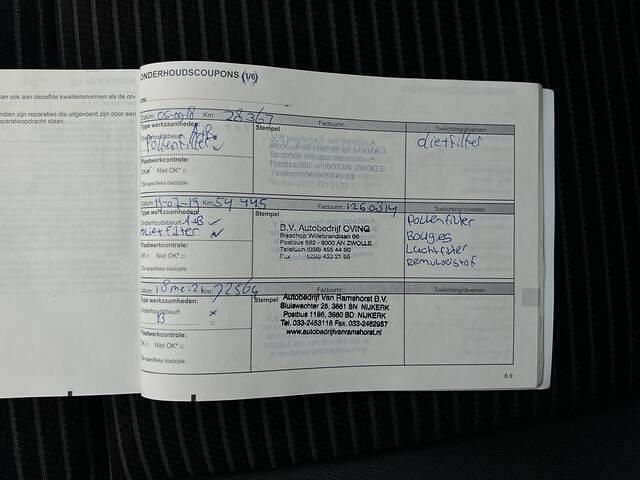 ONDERHOUDSCOUPONS (1/6)
lan ook aan dezelfde kwaliteitsnormen als de on-
ndien zijn reparaties die uitgevoerd zijn door een
reparatieopdracht staan.
VIN:
Datum: Km: 28367 Factuurnr.: Toelichting/diversen
Type werkzaamheden: Stempel
Onderhoudsbeurt A-B
Pollenfilter
Plaatwerkcontrole:
OK Niet OK*
*Zie specifieke bladzijde
Datum: 15-07-19 Km: 54 445 Factuurnr.: 1260314 Toelichting/diversen
Type werkzaamheden: Stempel
Onderhoudsbeurt A-B
B.V. Autobedrijf OVING
Bisschop Willebrandlaan 66
Postbus 562 - 8000 AN ZWOLLE
Telefoon (038) 455 44 60
Fax (038) 453 21 55
Pollenfilter
Bougies
Luchtfilter
Remvloeistof
Plaatwerkcontrole:
OK Niet OK*
*Zie specifieke bladzijde
Datum: Km: 72564 Factuurnr.: Toelichting/diversen
Type werkzaamheden: Stempel
Onderhoudsbeurt
B
Autobedrijf Van Ramshorst B.V.
Sluiswachter 25, 3861 SN NIJKERK
Postbus 1186, 3860 BD NIJKERK
Tel. 033-2453118 Fax. 033-2462957
www.autobedrijfvanramshorst.nl
Plaatwerkcontrole:
OK Niet OK*
*Zie specifieke bladzijde
6.9